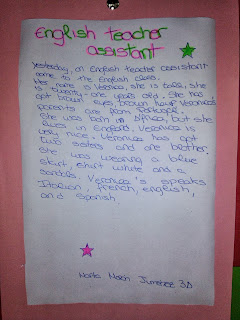 English teacher
assistant
yesterday, an English teacher assistant
came to the English class.
Her name is Veronica, she is tall, she
is twenty-one years old. She has
got brown eyes, brown hair. Veronica's
parents are from Portugal.
She was born in Africa, but she
lives in England. Veronica is
very nice. Veronica has got
two sisters and one brother.
She was wearing a blue
skirt, shirt white and a
sandals. Veronica's speaks
Italian, french, english,
and Spanish.
3A